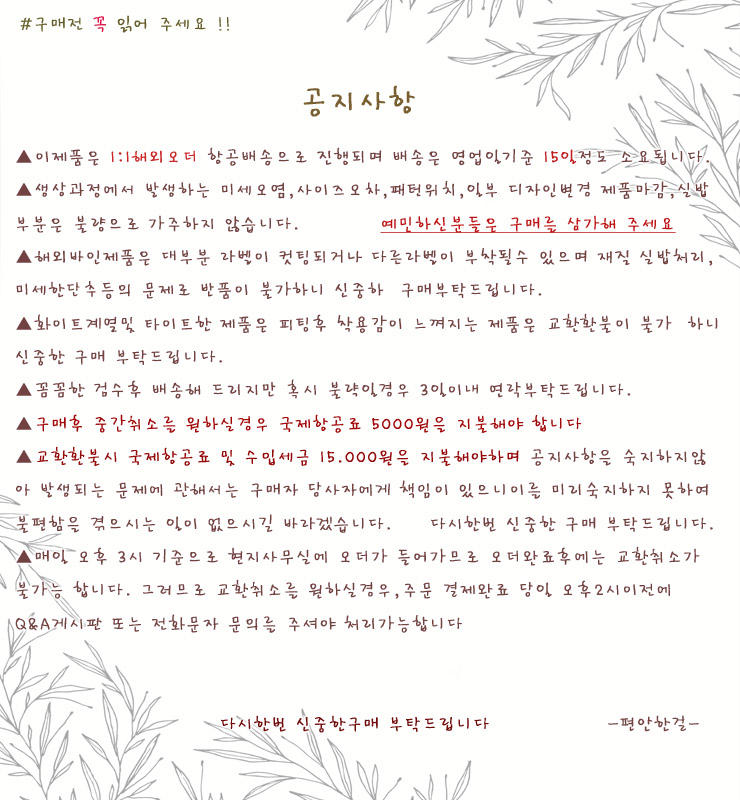 #구매전 꼭 읽어 주세요 !!
공지사항
▲이제품은 1:1해외오더 항공배송으로 진행되며 배송은 영업일기준 15일정도 소요됩니다.
▲생상과정에서 발생하는 미세오염,사이즈오차,패턴위치,일부 디자인변경 제품마감,실밥
부분은 불량으로 가주하지 않습니다. 예민하신분들은 구매를 삼가해 주세요
▲해외바인제품은 대부분 라벨이 컷팅되거나 다른라벨이 부착될수 있으며 재질 실밥처리,
미세한단추등의 문제로 반품이 불가하니 신중하 구매부탁드립니다.
▲화이트계열및 타이트한 제품은 피팅후 착용감이 느껴지는 제품은 교환환불이 불가 하니
신중한 구매 부탁드립니다.
▲꼼꼼한 검수후 배송해 드리지만 혹시 불략일경우 3일이내 연락부탁드립니다.
▲구매후 중간취소를 원하실경우 국제항공료 5000원을 지불해야 합니다
▲교환환불시 국제항공료 및 수입세금 15.000원을 지불해야하며 공지사항을 숙지하지않
아 발생되는 문제에 관해서는 구매자 당사자에게 책임이 있으니이를 미리숙지하지 못하여
불편함을 겪으시는 일이 없으시길 바라겠습니다. 다시한번 신중한 구매 부탁드립니다.
▲매일 오후 3시 기준으로 현지사무실에 오더가 들어가므로 오더완료후에는 교환취소가
불가능 합니다. 그러므로 교환취소를 원하실경우,주문 결제완료 당일 오후2시이전에
Q&A게시판 또는 전화문자 문의를 주셔야 처리가능합니다
다시한번 신중한구매 부탁드립니다 -편안한걸-